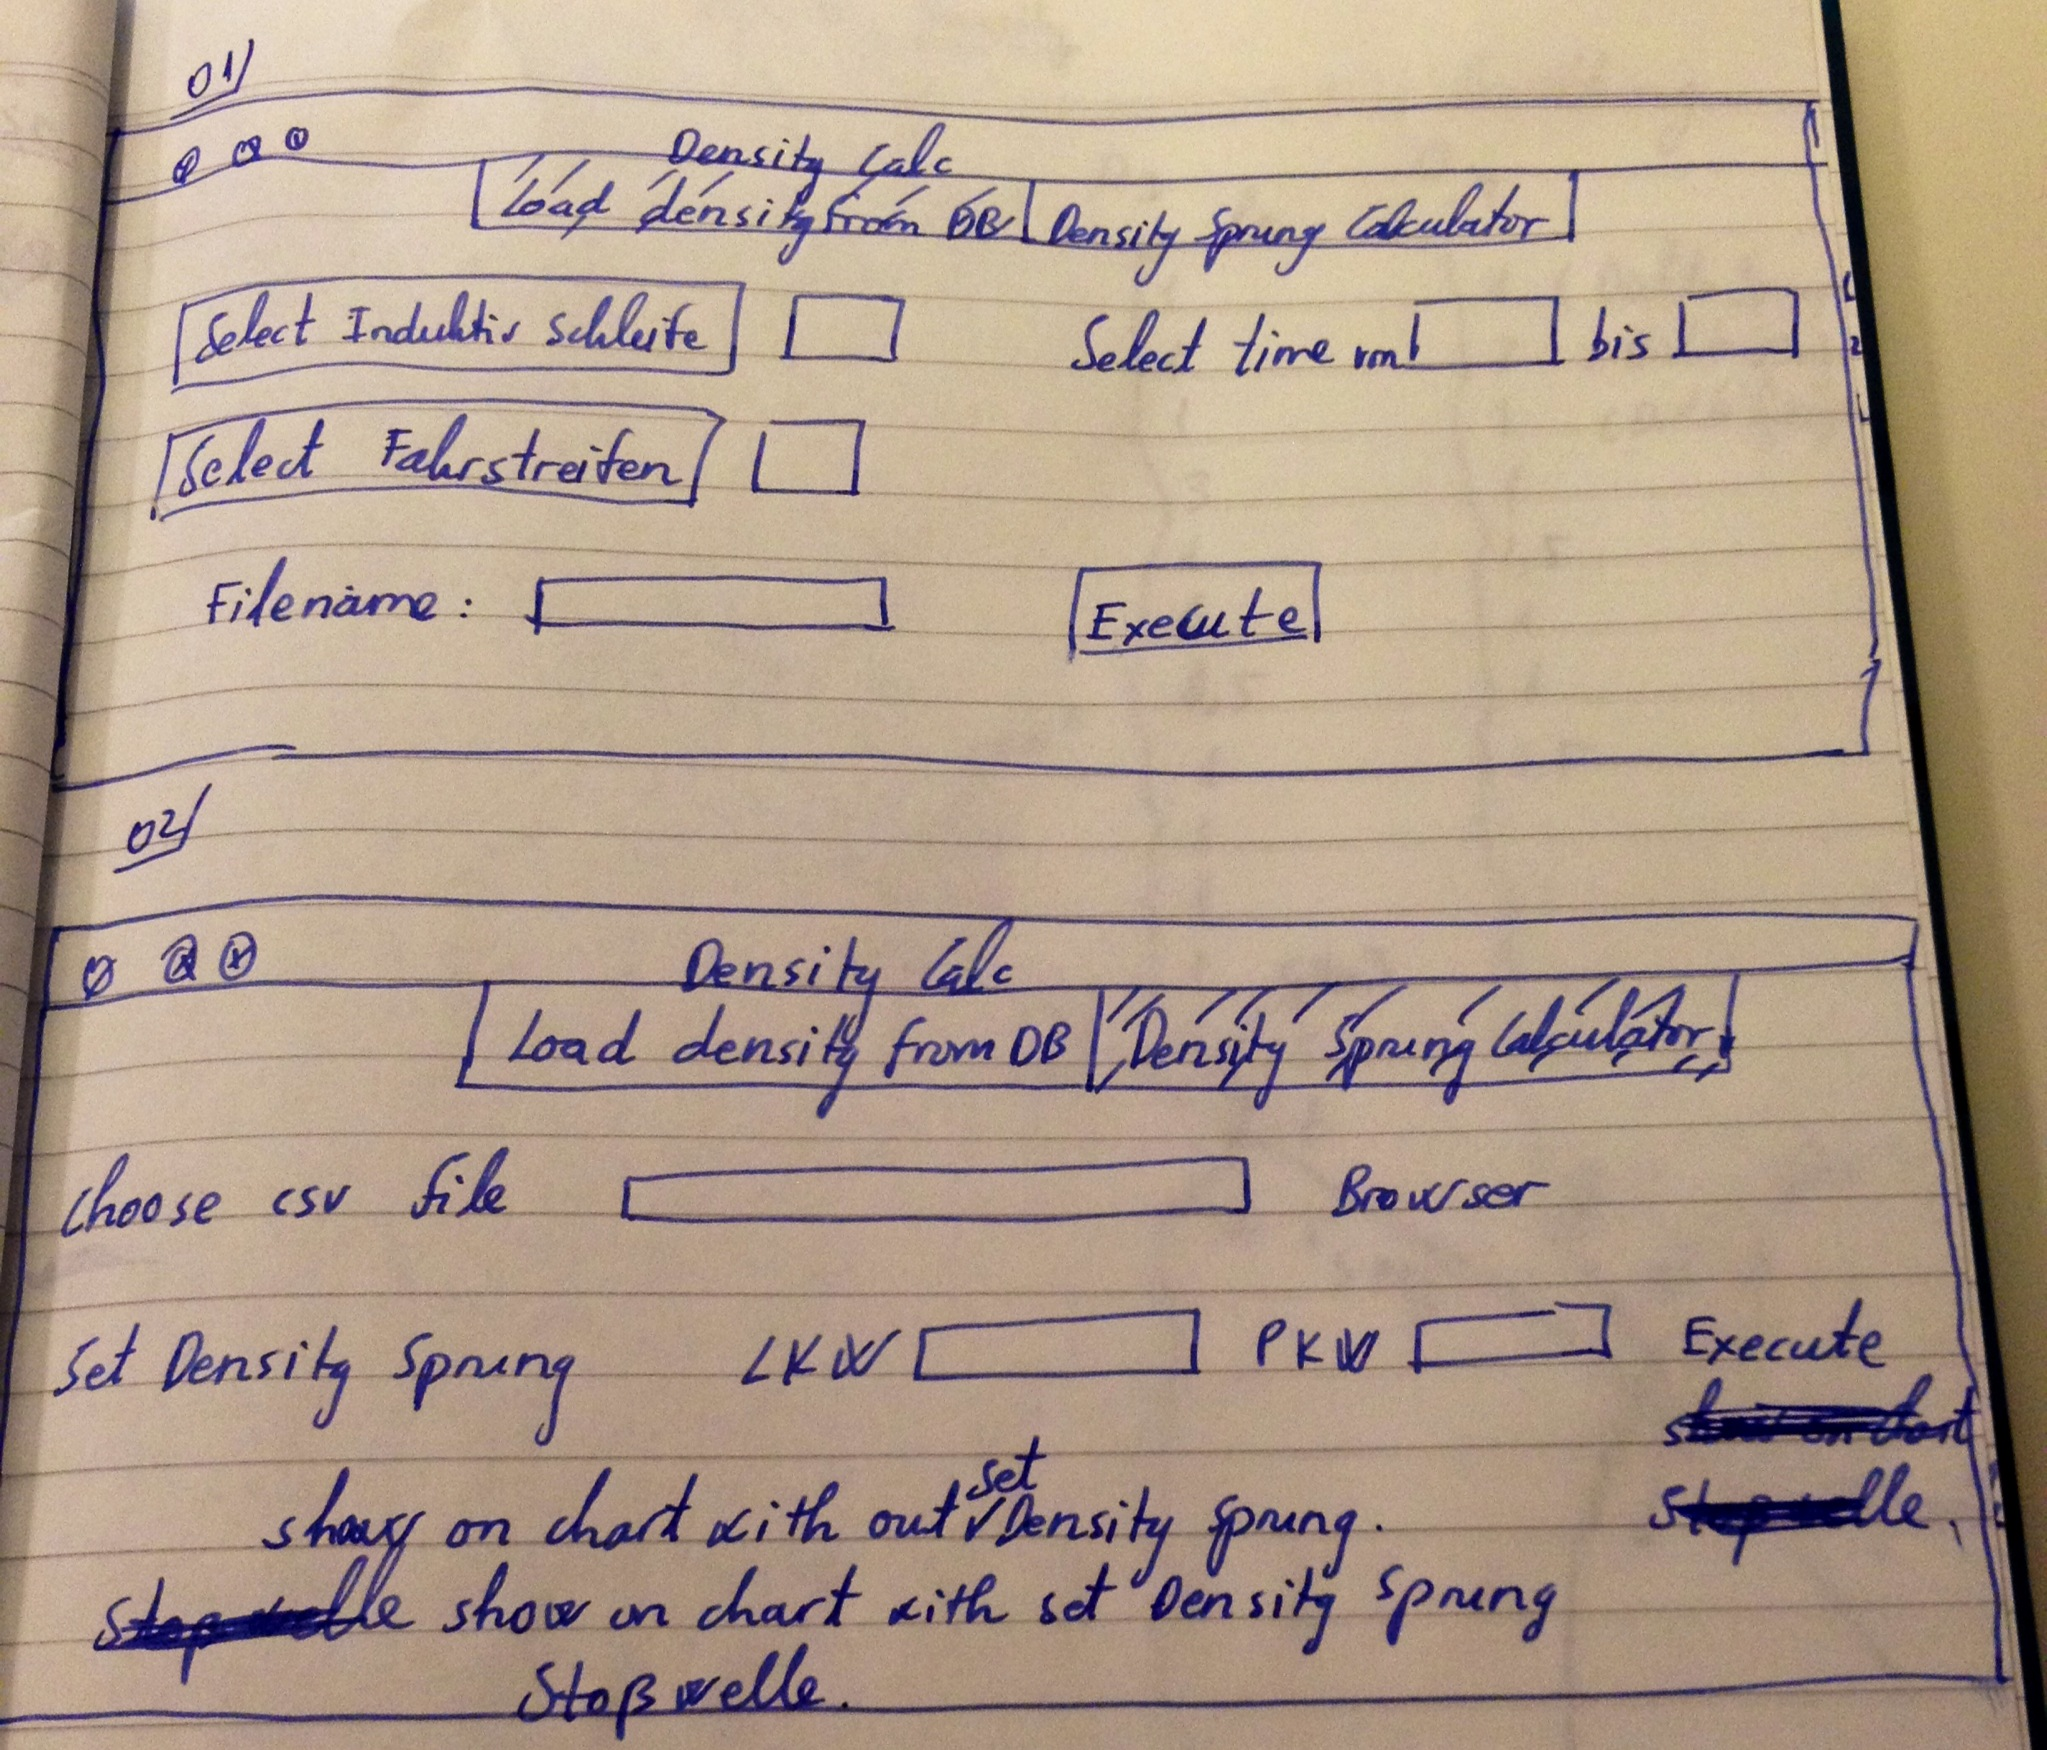 01/
Density Calc
Load density from DB Density Sprung Calculator
Select Induktiv Schleife Select time von bis
Select Fahrstreifen
Filename: Execute
02/
Density Calc
Load density from DB Density Sprung Calculator
Choose csv file Browser
Set Density Sprung LKW PKW Execute
show on chart
show on chart with out set Density Sprung. Stopwelle.
Stopwelle show on chart with set Density Sprung
Stoßwelle.